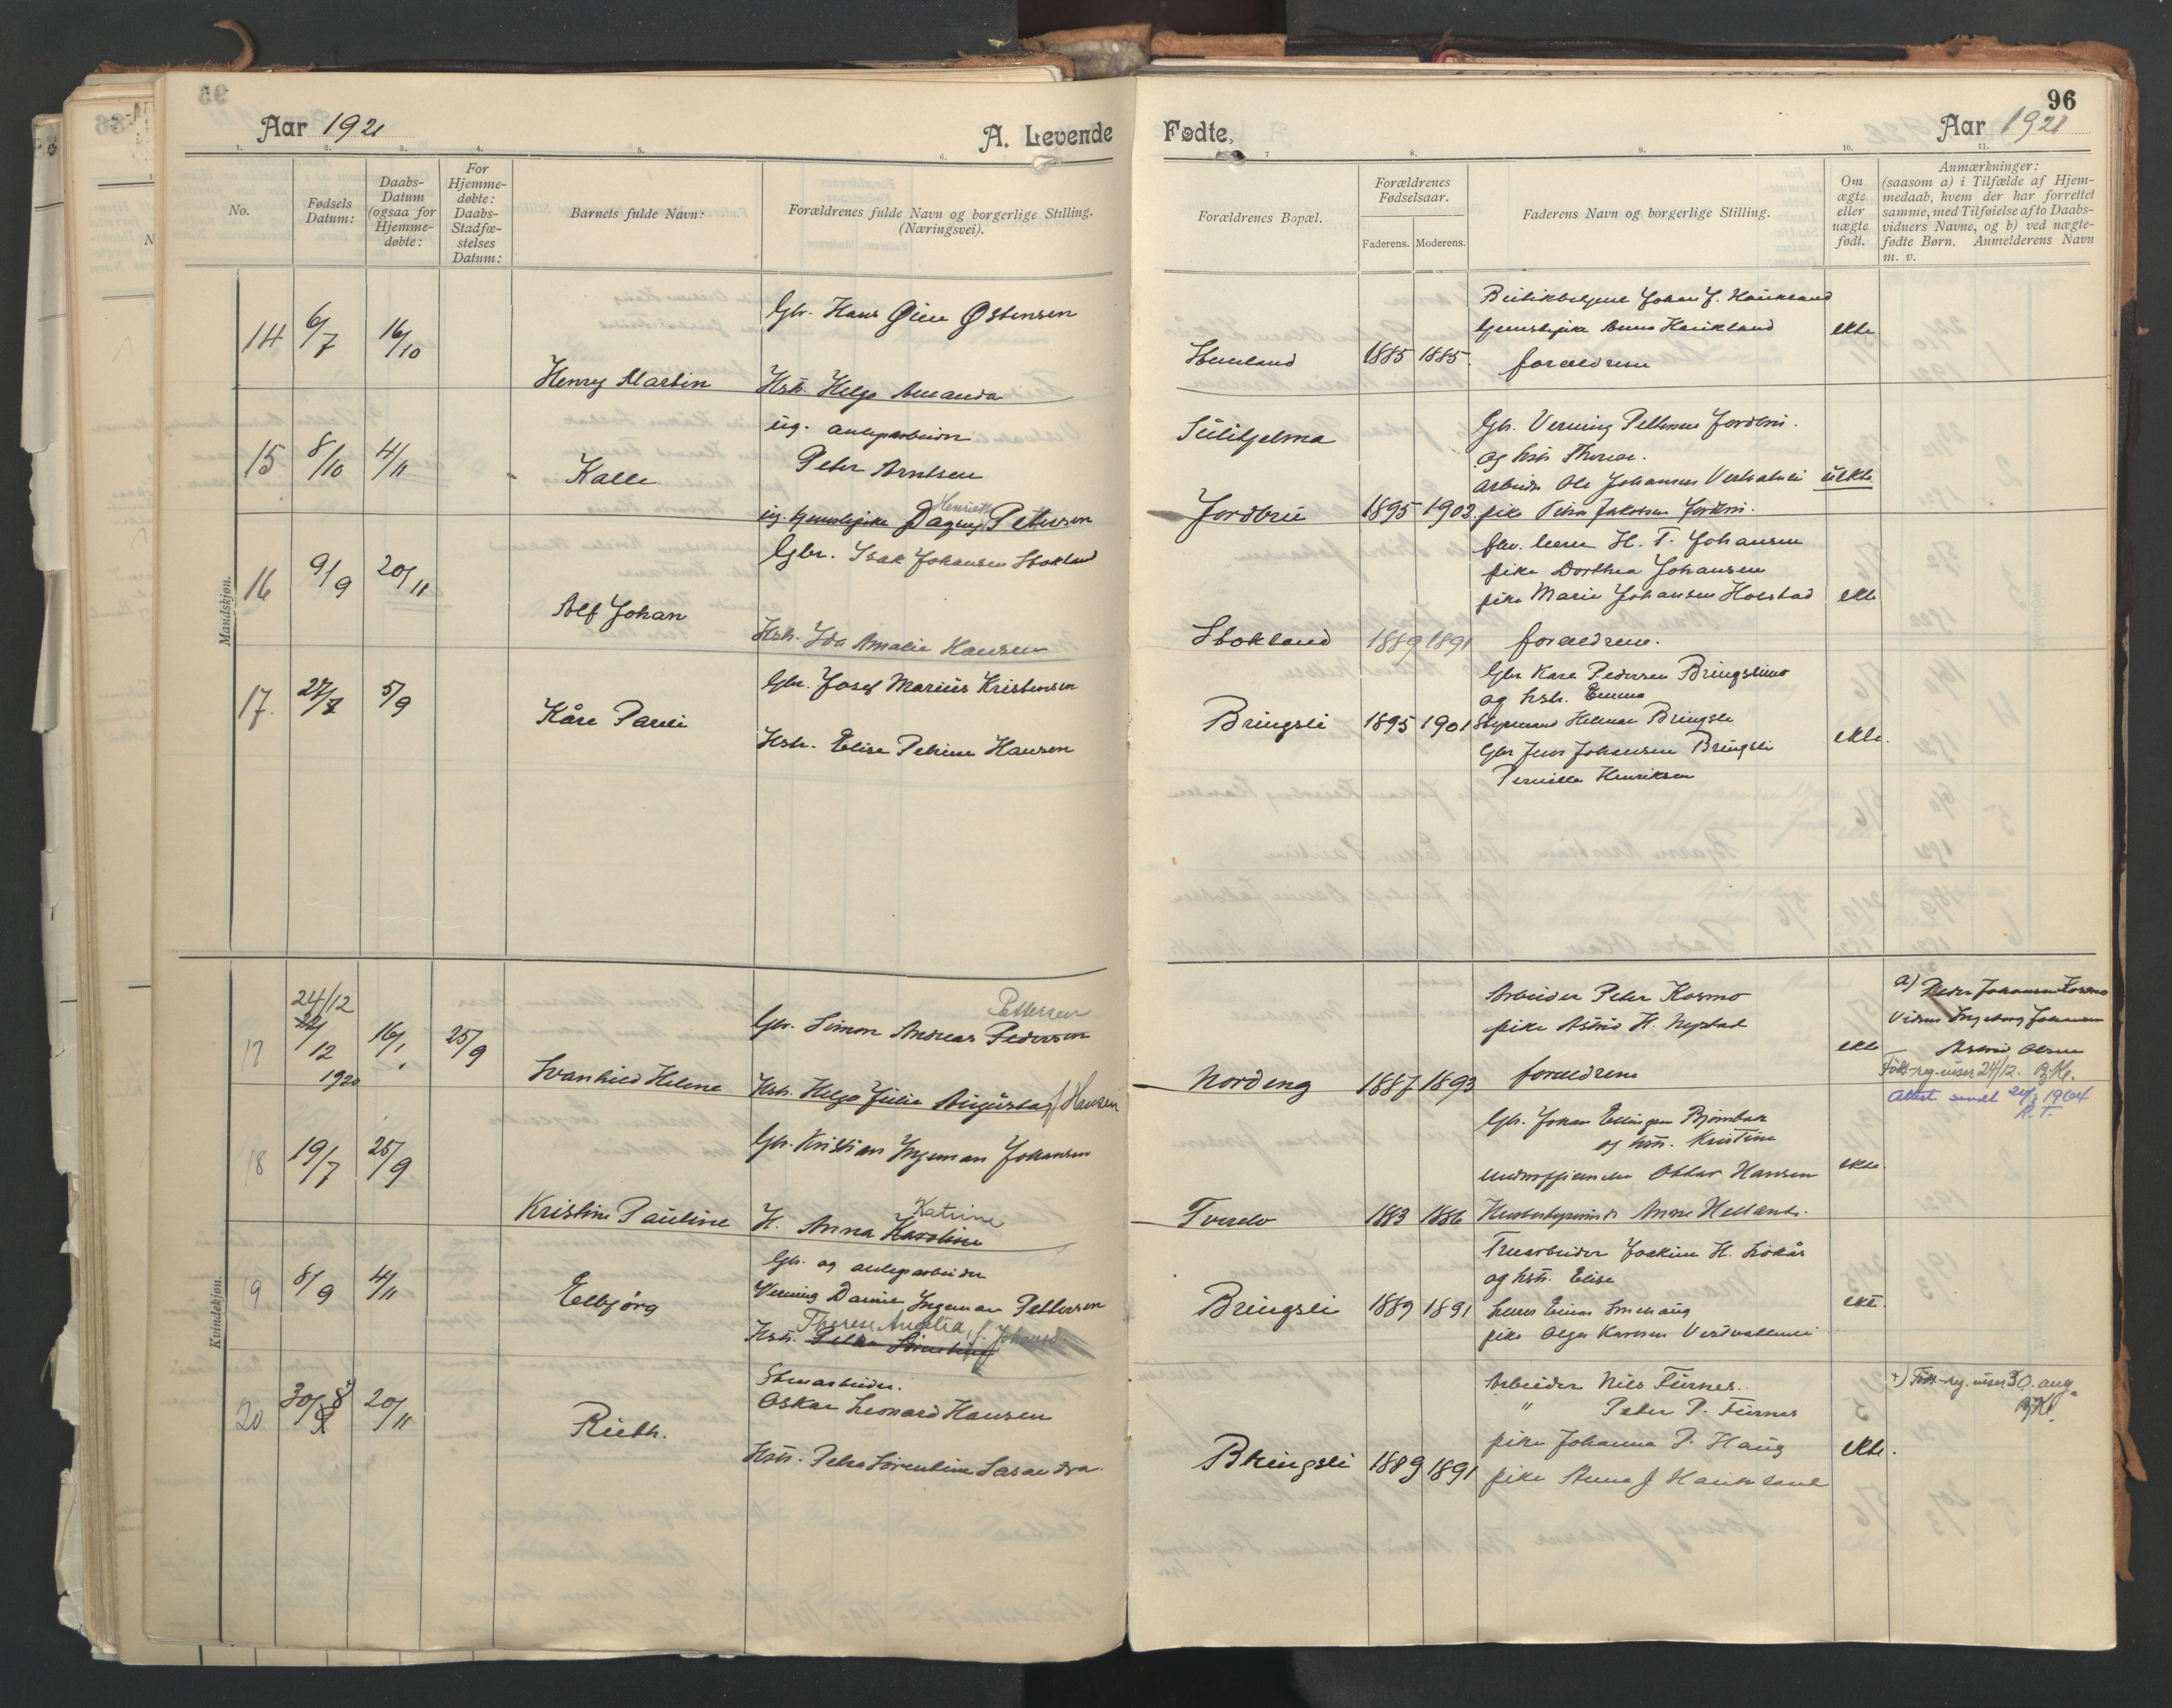 96
Aar 1921
A. Levende
Fødte,
Aar 1921
1. 2. 3. 4. 5. 6. 7 8. 9. 10. 11.
No.
Fødsels
Datum:
Daabs-
Datum
(ogsaa for
Hjemme-
døbte:
For
Hjemme-
døbte:
Daabs-
Stadfæ-
stelses
Datum:
Barnets fulde Navn:
Forældrenes fulde Navn og borgerlige Stilling.
(Næringsvei).
Forældrenes Bopæl.
Forældrenes
Fødselsaar.
Faderens. Moderens.
Faderens Navn og borgerlige Stilling.
Om
ægte
eller
uægte
født.
Anmærkninger:
(saasom a) i Tilfælde af Hjem-
medaab, hvem der har forrettet
samme, med Tilføielse af to Daabs-
vidners Navne, og b) ved uægte-
fødte Børn. Anmelderens Navn
m. v.
Mandskjøn.
14 6/7 16/10
Henry Martin
Gbr. Hans Øien Østensen
Hstr. Helga Amanda
1885 1885
Johan J. Haukland
Anna Haukland
forældrene
ekte
15 8/10 4/11
Kalle
ug. anlegsarbeider
Peter Arntsen
Henriette
ug. Dagny Petersen
Sulitjelma
Jordbru 1895 1902
Gbr. Verning Pettersen Jordbru.
og hstr.
Arbeider Ole Johansen
pike Jakobsen Jordbru.
uekte
16 9/9 20/11
Alf Johan
Gbr. Isak Johansen Stokland
Hstr. Ida Amalie Hansen
Stokland 1889 1891
H. T. Johansen
pike Dorthea Johansen
pike Marie Johansen Holstad
forældrene.
ekte
17. 27/7 5/9
Kåre Pareli
Gbr. Josef Marius Kristensen
Hstr. Elise Petrine Hansen
Bringsli 1895 1901
Gbr Kare Pedersen Bringslimo
og hstr. Emma
Styrmand Helmar Bringsli
Gbr Jens Johansen Bringsli
Pernille Henriksen
ekte.
Kvindekjøn.
17 24/12
22/12 1920 16/1 25/9
Svanhild Helene
Pettersen
Gbr. Simon Andreas Pedersen
Hstr. Helga Julie Augusta f. Hansen
Nordeng 1887 1893
Arbeider Peter Kosmo
pike Astrid H. Nystad
forældrene
ekte
a) Peder Johansen Kosmo
Vidner Ingeborg Johansen
Astrid Olsen
Födt-reg. viser 24/12. B.Kl.
Attest sendt 24/3 1964
R.T.
18 19/7 25/9
Kristine Pauline
Gbr. Kristian Ingeman Johansen
Katrine
H. Anna Karoline
Tverelv 1883 1886
Gbr. Johan Ellingsen Bjørnbak
og hstr. Kristine
Underofficer Ottar Hansen
Anna Helland.
ekte.
19 8/9 4/11
Eelbjørg
Gbr. og anlegsarbeider
Verning Daniel Ingeman Pettersen
Therese Angelia, f. Johansd.
Hstr. Petra Sørentine
Bringsli 1889 1891
Træarbeider Joakim H. Løkås
og hstr. Elise
Lærer Einar Smehaug
pike Olga Karlsen Vestvallimi
ekte.
20 30/8 +) 20/11
Ruth.
Stenarbeider.
Oskar Leonard Hansen
Hstr. Petra Sørentine Sasandra.
Bringsli 1889 1891
Arbeider Nils Furnes.
" Peter P. Furnes
pike Johanna P. Haug
pike Anna J. Haukland
ekte.
+) Födt-reg. viser 30. aug.
B.Kl.